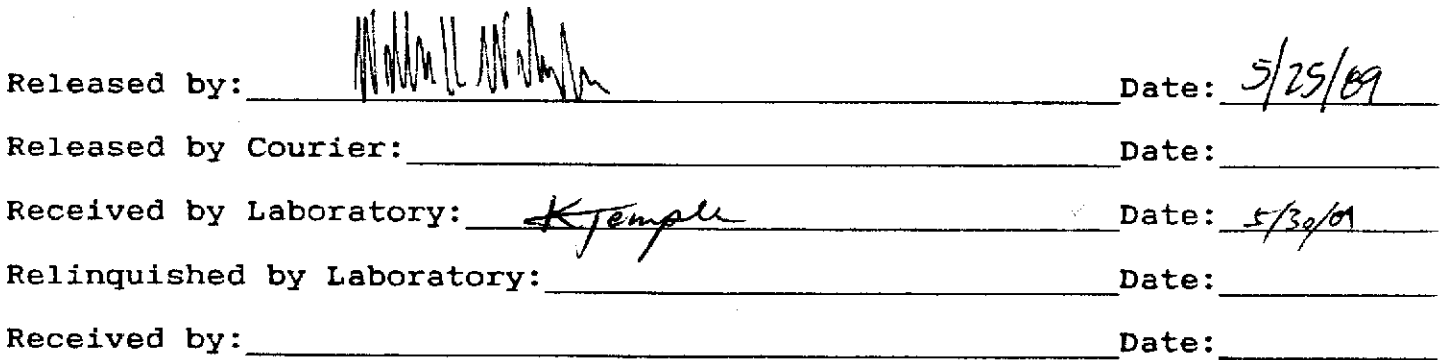 Released by: Date: 5/25/09
Released by Courier: Date:
Received by Laboratory: KTemple Date: 5/30/09
Relinquished by Laboratory: Date:
Received by: Date: